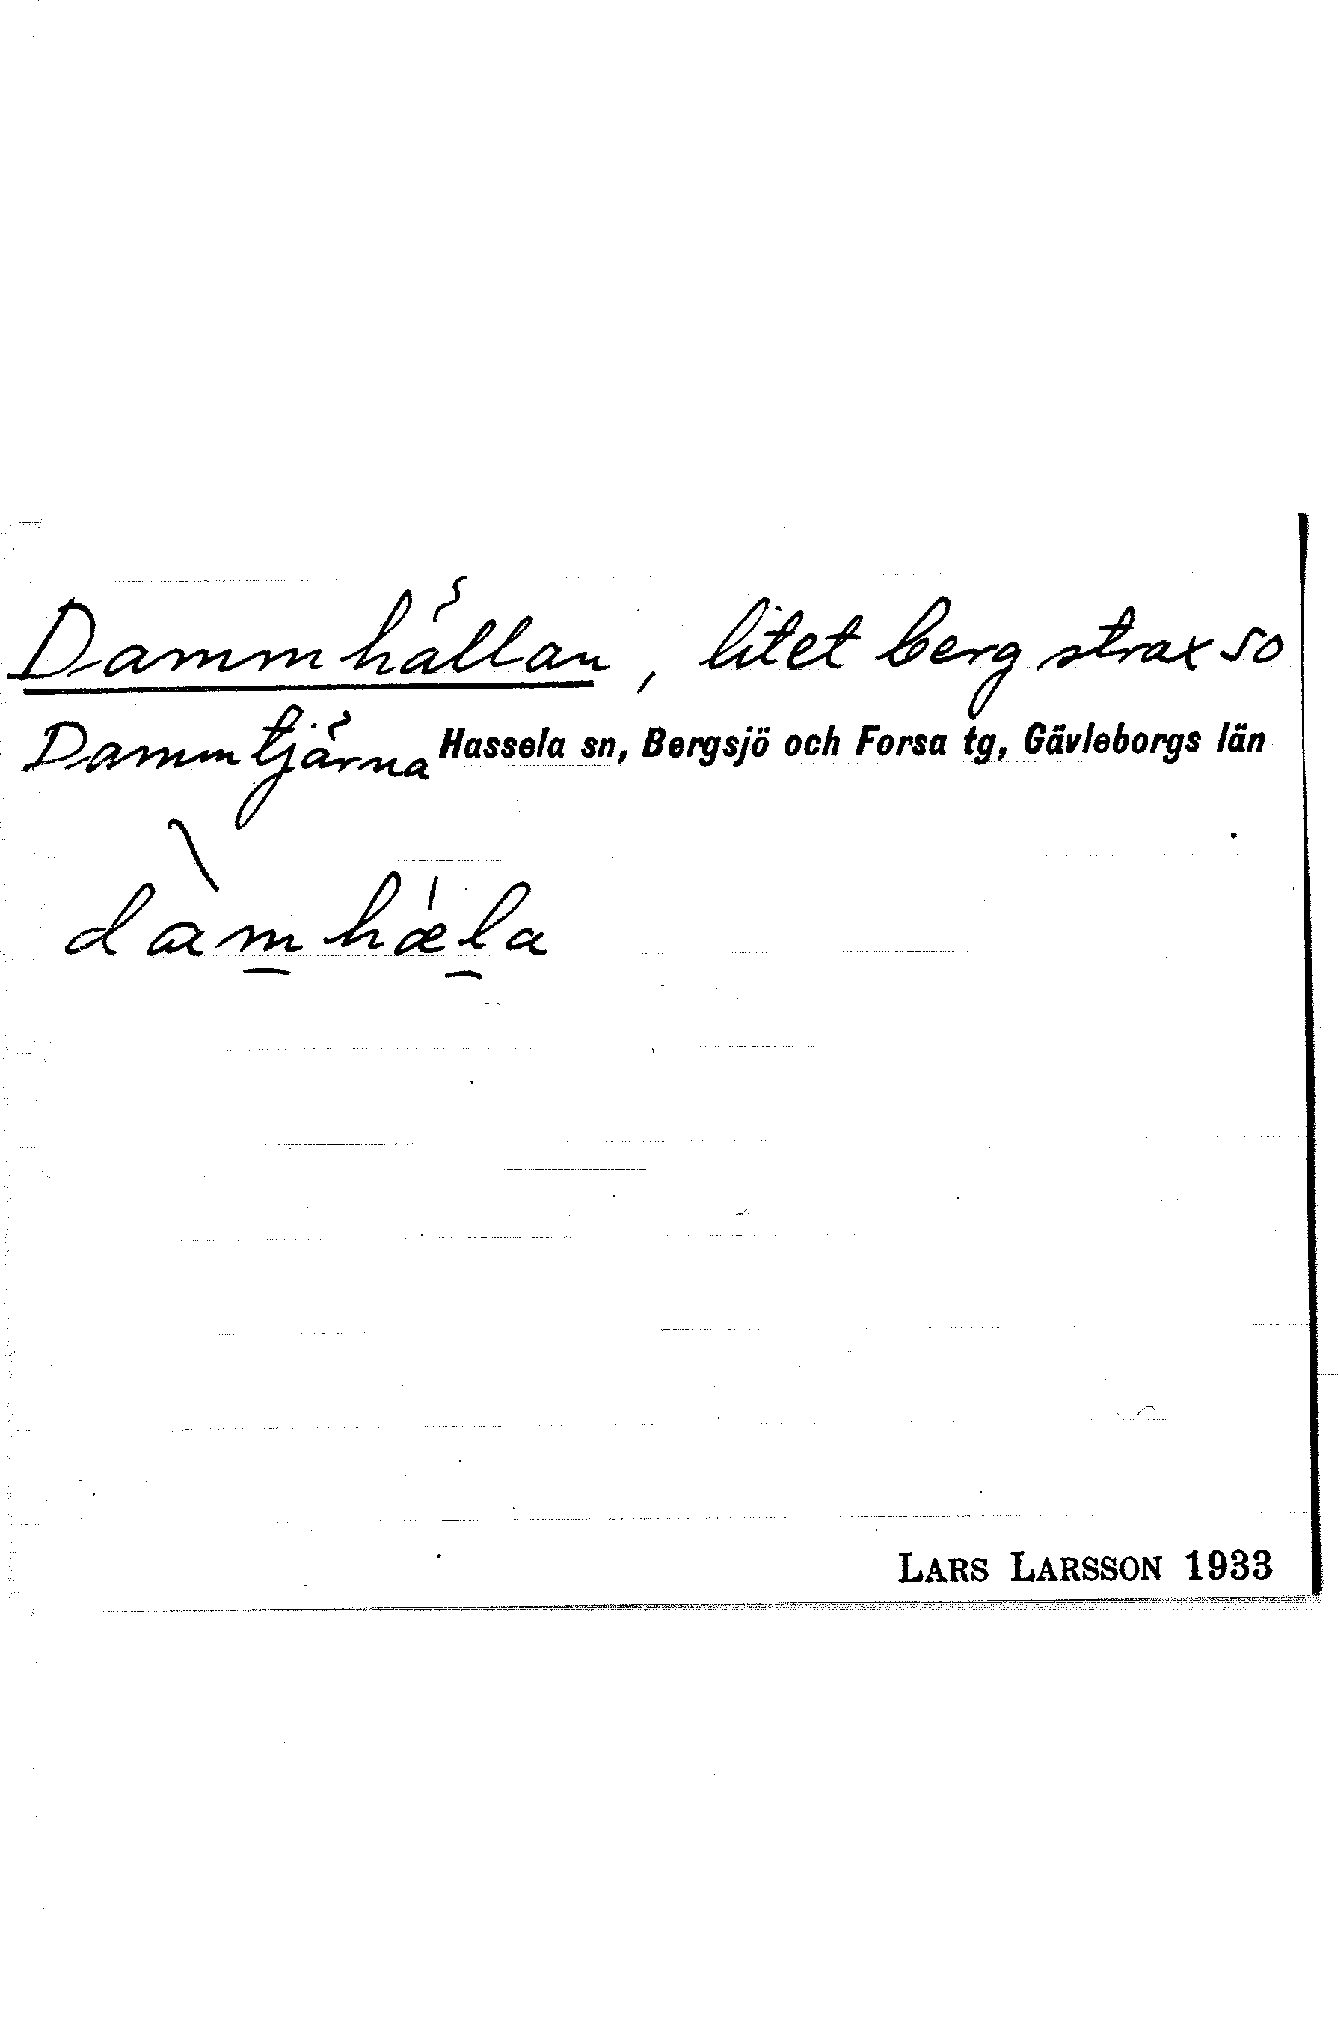 Dammhällan, litet berg strax SO
Dammtjärna Hassela sn, Bergsjö och Forsa tg, Gävleborgs län
dàm̲hæ̍l̲a
LARS LARSSON 1933